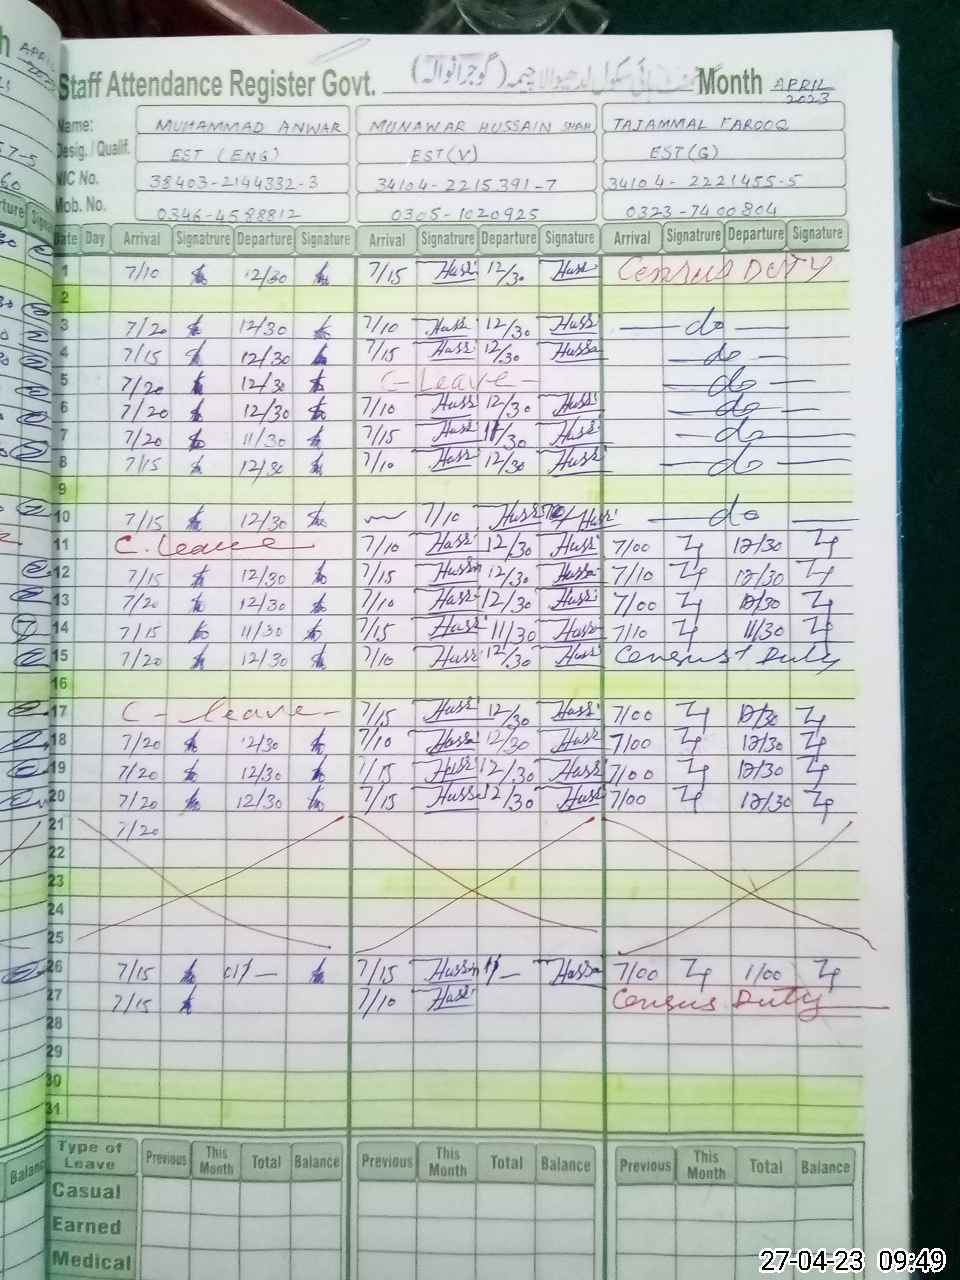 Staff Attendance Register Govt. (گوجرانوالہ) Month APRIL 2023
Name: MUHAMMAD ANWAR MUNAWAR HUSSAIN SHAH TAJAMMAL FAROOQ
Desig. / Qualif. EST (ENG) EST(V) EST(G)
NIC No. 38403-2144332-3 34104-2215391-7 34104-2221455-5
Mob. No. 0346-4588812 0305-1020925 0323-7400804
Date Day Arrival Signatrure Departure Signature Arrival Signatrure Departure Signature Arrival Signatrure Departure Signature
1 7/10 12/30 7/15 Huss 12/30 Huss Census DUTY
2
3 7/20 12/30 7/10 Huss 12/30 Huss — do —
4 7/15 12/30 7/15 Huss 12/30 Hussa — do —
5 7/20 12/30 C - Leave - — do —
6 7/20 12/30 7/10 Huss 12/30 Huss — do —
7 7/20 11/30 7/15 Huss 11/30 Huss — do —
8 7/15 12/30 7/10 Huss 12/30 Huss — do —
9
10 7/15 12/30 7/10 Huss Huss — do —
11 C. Leave 7/10 Huss 12/30 Huss 7/00 12/30
12 7/15 12/30 7/15 Hussn 12/30 Hussa 7/10 12/30
13 7/20 12/30 7/10 Huss 12/30 Huss 7/00 12/30
14 7/15 11/30 7/15 Huss 11/30 Huss 7/10 11/30
15 7/20 12/30 7/10 Huss 12/30 Huss Census Duty
16
17 C - leave - 7/15 Huss 12/30 Huss 7/00 12/30
18 7/20 12/30 7/10 Hussa 12/30 Huss 7/00 12/30
19 7/20 12/30 7/15 Huss 12/30 Huss 7/00 12/30
20 7/20 12/30 7/15 Huss 12/30 Huss 7/00 12/30
21 7/20
22
23
24
25
26 7/15 01/— 7/15 Hussn 1/— Hussa 7/00 1/00
27 7/15 7/10 Huss Census Duty
28
29
30
31
Type of Leave Previous This Month Total Balance Previous This Month Total Balance Previous This Month Total Balance
Casual
Earned
Medical
27-04-23 09:49